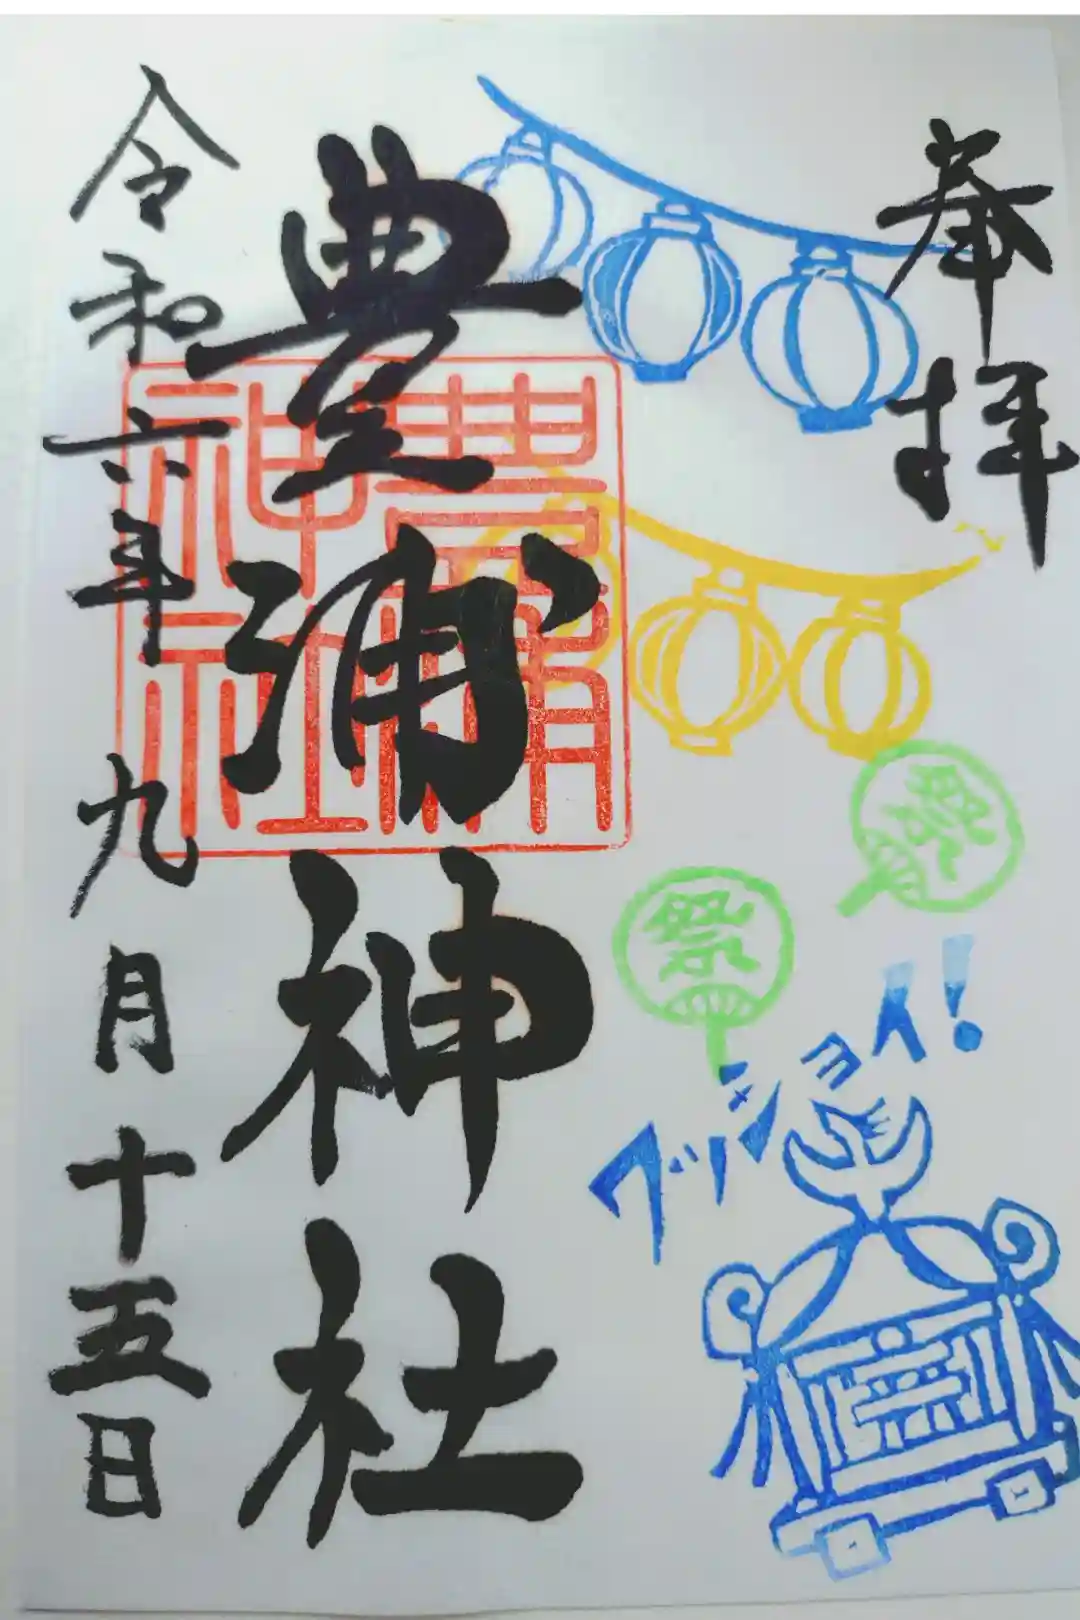 奉拝
豊浦神社
令和六年九月十五日
豊浦
神社
祭
祭
ワッショイ!